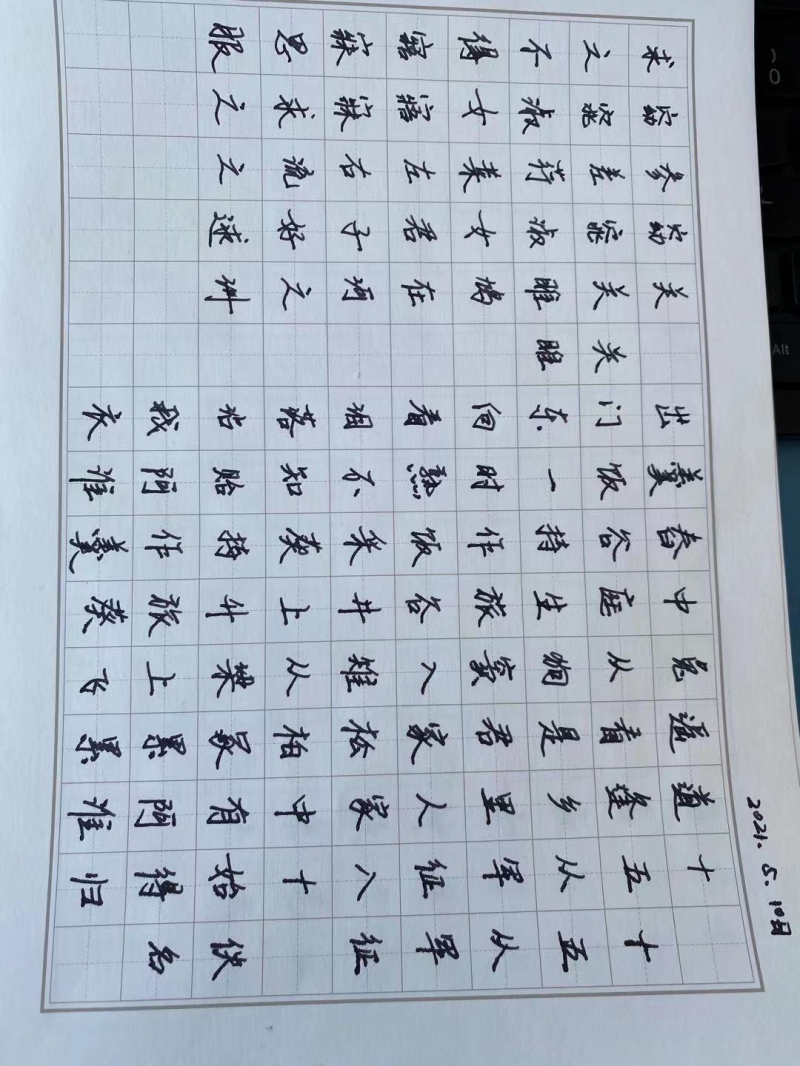 十五从军征 佚名
十五从军征八十始得归
道逢乡里人家中有阿谁
遥看是君家松柏冢累累
兔从狗窦入雉从梁上飞
中庭生旅谷井上升旅葵
舂谷持作饭采葵持作羹
羹饭一时熟不知贻阿谁
出门东向看泪落沾我衣
关雎
关关雎鸠在河之洲
窈窕淑女君子好逑
参差荇菜左右流之
窈窕淑女寤寐求之
求之不得寤寐思服
2021.5.10日
Alt